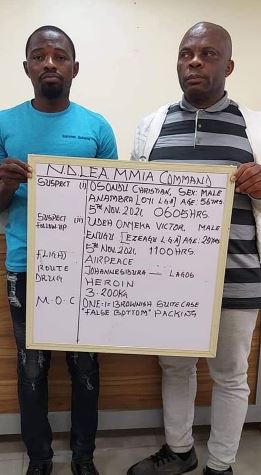 NDLEA MMIA COMMAND
SUSPECT (i) OSONDU CHRISTIAN, SEX: MALE
ANAMBRA [OYI LGA] AGE: 56YRS
5TH NOV. 2021, 0605HRS
SUSPECT (ii) UDEH OMYEKA VICTOR MALE
FOLLOW UP ENUGU [EZEAGU LGA] AGE: 29YRS
5TH NOV. 2021, 1100HRS
FLIGHT AIRPEACE
ROUTE JOHANNESBURG — LAGOS
DRUG HEROIN
3.200KG
M.O.C ONE:1= BROWNISH SUITCASE
"FALSE BOTTOM" PACKING